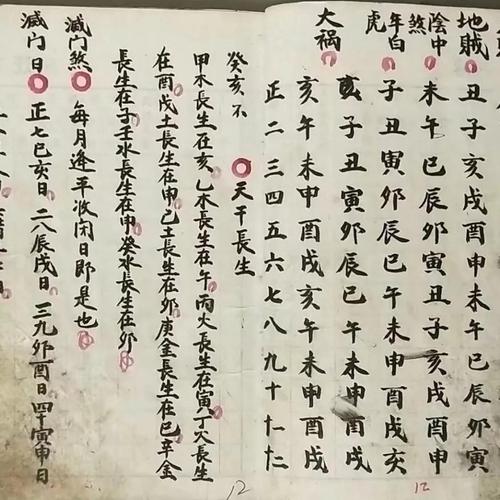 地賊 丑子亥戌酉申未午巳辰卯寅
陰中煞 未午巳辰卯寅丑子亥戌酉申
年白虎 子丑寅卯辰巳午未申酉戌亥
亥子丑寅卯辰巳午未申酉戌
大祸 亥午未申酉戌亥午未申酉戌
正二三四五六七八九十
12
天干長生
癸亥不
甲木長生在亥乙木長生在午丙火長生在寅丁火長生
在酉戊土長生在申己土長生在卯庚金長生在巳辛金
長生在子壬水長生在申癸水長生在卯
滅门煞 每月逢平收闭日即是也
滅门日 正七巳亥日 二八辰戌日 三九卯酉日 四十寅申日
12